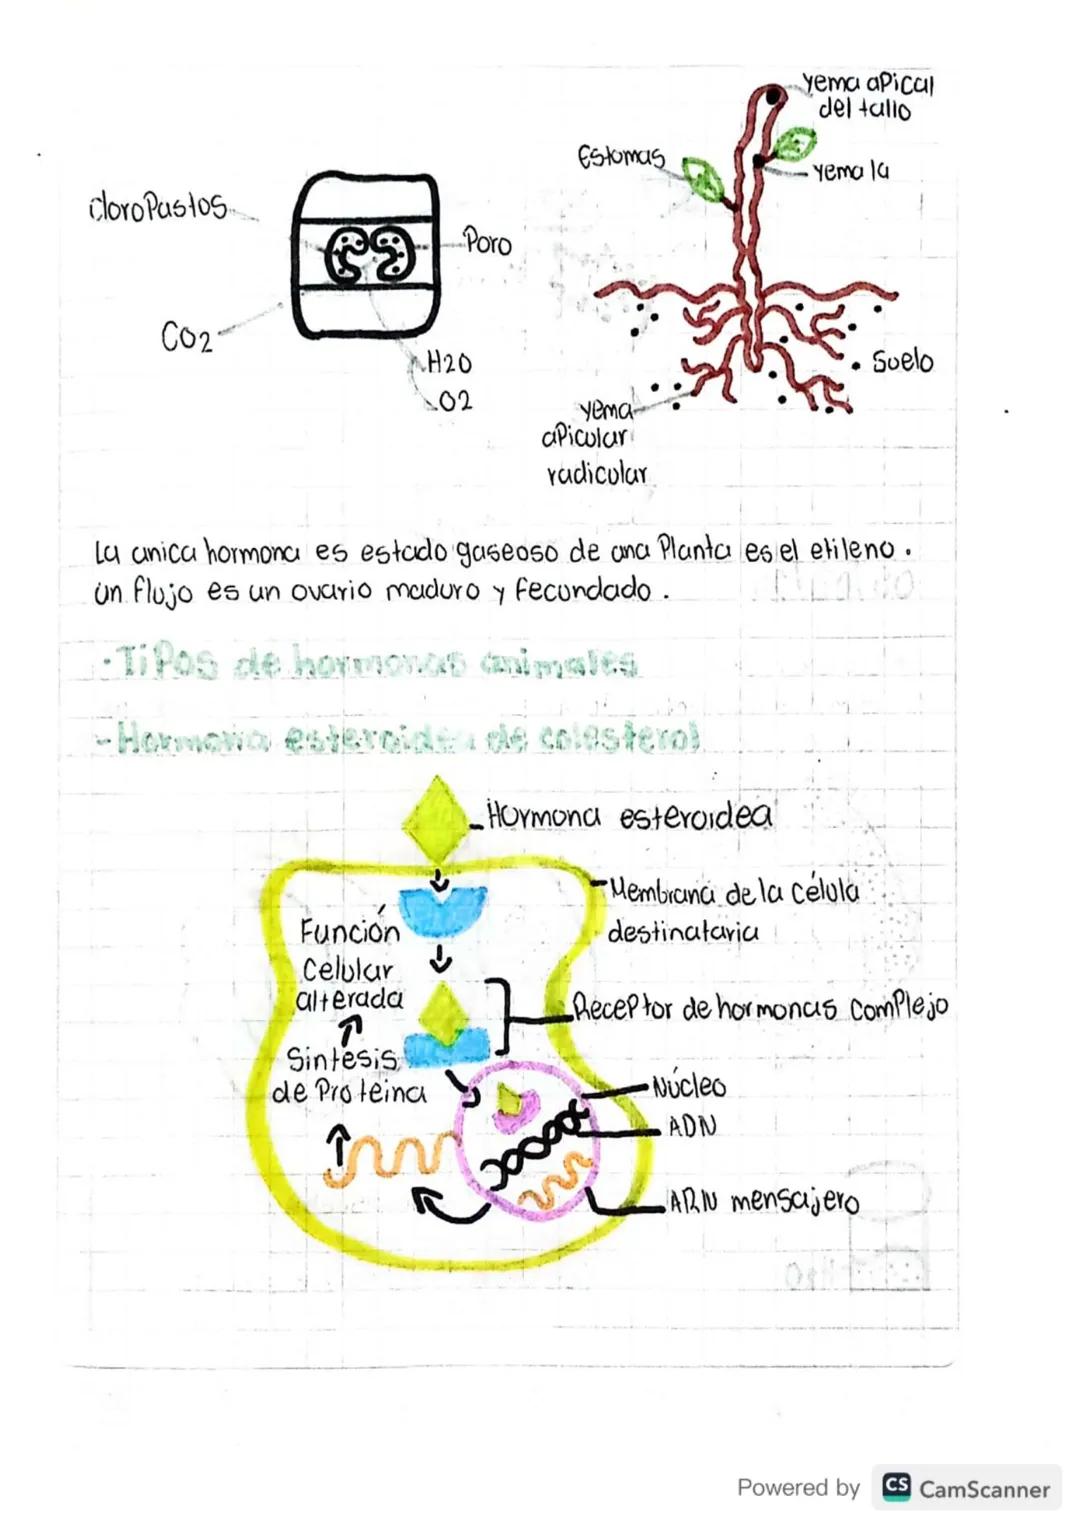 yema apical
del tallo
Estomas
yema la
cloroPastos
Poro
CO2
H2O
O2
Suelo
yema
apicular
radicular
La unica hormona es estado gaseoso de una Planta es el etileno.
un flujo es un ovario maduro y fecundado.
·Tipos de hormonas animales
-Hormona esteroidea de colesterol
Hormona esteroidea
Membrana de la célula
destinataria
Función
Celular
alterada
Receptor de hormonas complejo
Sintesis
de Proteina
Núcleo
ADN
ARN mensajero
Powered by CS CamScanner